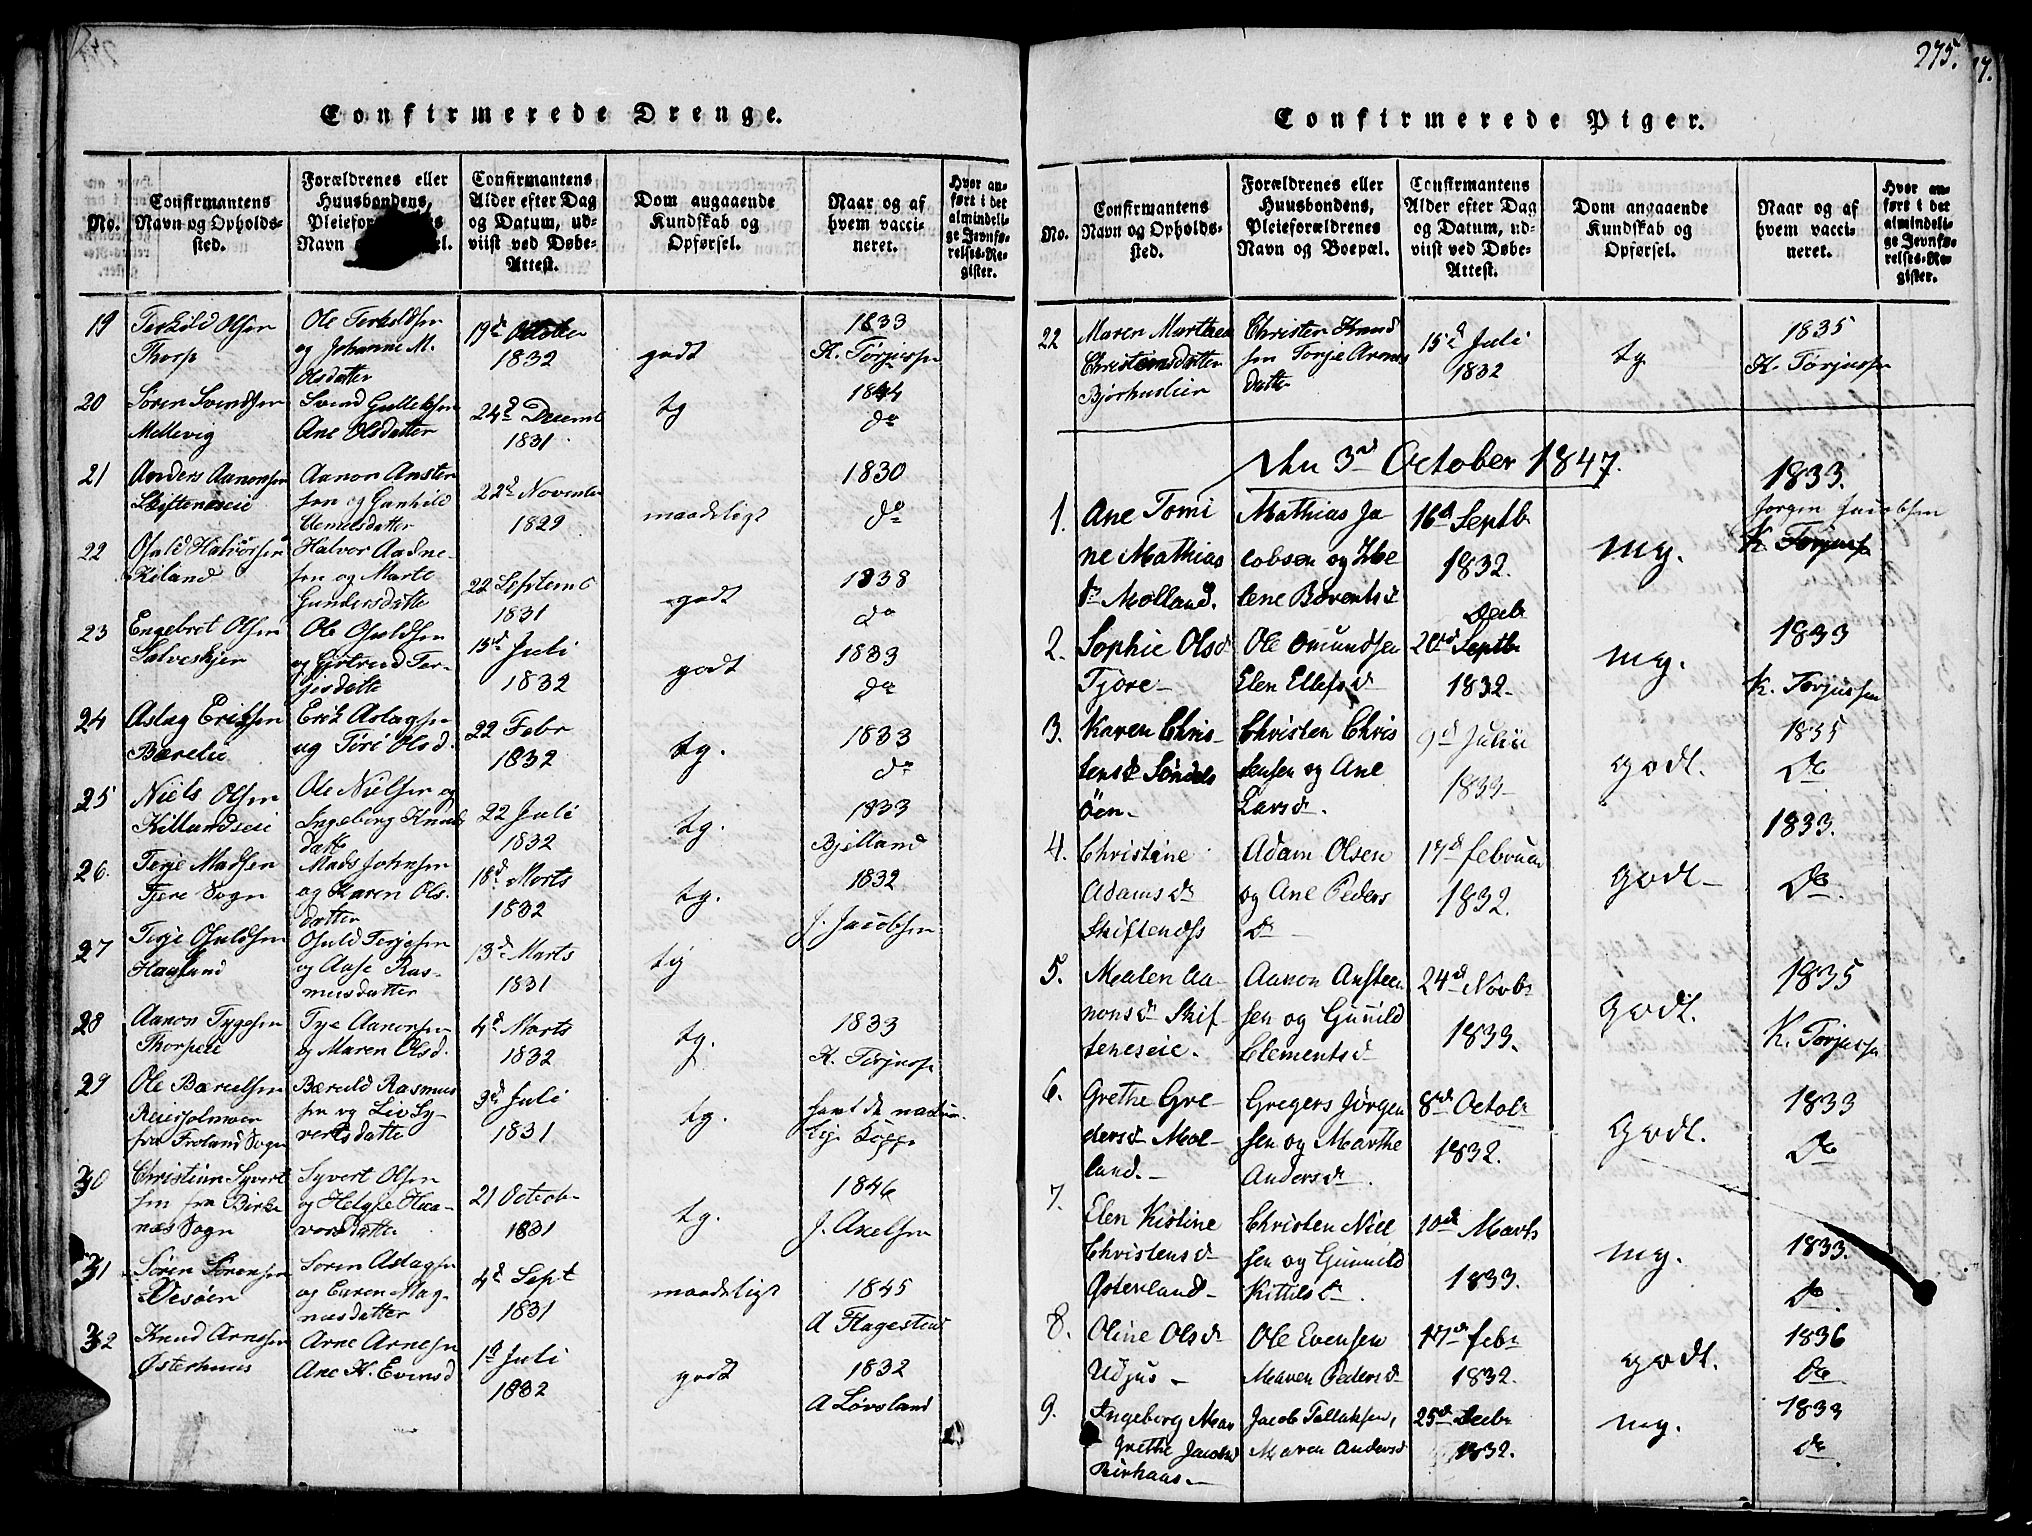 Confirmerede Drenge.
No.
Confirmantens
Navn og Opholds-
sted.
Forældrenes eller
Huusbondens,
Navn
Confirmantens
Alder efter Dag
og Datum, ud-
viist ved Døbe-
Attest.
Dom angaaende
Kundskab og
Opførsel.
Naar og af
hvem vacci-
neret.
Hvor an-
ført i det
almindeli-
ge Jevnfø-
relses-Re-
gister.
19
Terkild Olsen
Thorp
Ole Terkildsen
og Johanne M.
Olsdatter
19d October
1832
godt
1833
K. Torjussen
20
Søren Svendsen
Mellevig
Svend Gulleksen
Ane Olsdatter
24d Decemb
1831.
tg
1844
do
21
Anders Aanonsen
Skifteneseie
Aanon Ansten
sen og Gunhild
Clemetsdatter
22d Novemb
1829
maadeligt
1830
do
22
Osuld Halvorsen
Kiland
Halvor Aadne-
sen og Marte
Gundersdatte
22 Septemb
1831
godt
1838
do
23
Engebret Olsen
Salveskjer
Ole Osuldsen
og Gjertrud Ter-
jesdatte
15d Juli
1832
godt
1833
do
24
Aslag Eriksen
Bærelie
Erik Aslagsen
og Tori Olsd.
22 Febr
1832
tg.
1833
do
25
Niels Olsen
Killandseie
Ole Nielsen og
Ingeborg Knuds
datte
22 Juli
1832
tg.
1833
Bjelland
26.
Terje Madsen
Fjere Sogn
Mads Johnsen
og Karen Ols-
datter
18d Marts
1832
tg.
1832
J. Jacobsen
27
Terje Osuldsen
Haugland
Osuld Terjesen
og Aase Ras-
musdatter
13d Marts
1831
tg
28
Aanon Tygesen
Thorpeie
Tyge Aanonsen
og Maren Olsd.
4d Marts
1832
tg.
1833
K. Torjusse
29
Ole Bærulsen
fra Froland Sogn
Bæruld Rasmus
sen og Liv Sy-
vertsdatte
3d Juli
1831
tg.
havt de natur-
lige Kopper
30
Christian Syvert
sen fra Birke
næs Sogn
Syvert Olsen
og Helge Hal-
vorsdatte
21 Octob-
1831
tg.
1846
J. Axelsen
31
Søren Sørensen
Vesøen
Søren Aslagsen
og Karen Mag-
nusdatter
4d Sept
1831
maadeligt
1845
A Flagestad
32
Knud Arnesen
Østerhuus
Arne Arnesen
Ane K. Evensd
1d Juli
1832
godt
1832
A Løvsland
275.
Confirmerede Piger.
No.
Confirmantens
Navn og Opholds-
sted.
Forældrenes eller
Huusbondens,
Pleieforældrenes
Navn og Boepæl.
Confirmantens
Alder efter Dag
og Datum, ud-
viist ved Døbe-
Attest.
Dom angaaende
Kundskab og
Opførsel.
Naar og af
hvem vacci-
neret.
Hvor an-
ført i det
almindeli-
ge Jevnfø-
relses-Re-
gister.
22
Maren Marthea
Christensdatter
Bjorhusleir
Christen Knud
sen Torje Arons
datte
15d Juli
1832
tg
1835
K. Torjussen
den 3d October 1847.
1.
Ane Tomi
ne Mathias
dr Molland.
Mathias Ja
cobsen og He
lene Berentsdr
16d Septb
1832.
mg.
1833.
Jorgen Jacobsen
K Torjuss
2.
Sophie Olsdr
Tjore-
Ole Omundsen
Elen Ellefsdr
Decbr
20d Septbr
1832.
mg.
1833
K. Torjussen
3.
Karen Chris-
tensdr Søndels
öen.
Christen Chris
tensen og Ane
Larsdr.
9d Julii
1833
godt.
1835
Do
4.
Christine
Adamsdr
Skiftenæs
Adam Olsen
og Ane Peders
dr
17d februar
1832.
godt
1833.
Do.
5.
Malen Aa-
nonsdr Skif
teneseie.
Aanon Ansten
sen og Gunild
Clementsdr
24d Novbr
1833.
godt.
1835
K. Torjussen
6.
Grethe Gre-
gersdr Mol-
land.
Gregers Jørgen
sen og Marthe
Andersdr.
8d Octobr
1832.
godt.
1833
Do
7.
Elen Kistine
Christensdr
Østerland
Christen Niel
sen og Gunnild
Kittilsdr.
10d Marts
1833.
mg.
1833.
Do.
8.
Oline Olsdr
Udjus
Ole Evensen
Maren Pedersdr
17d febr
1832.
godt.
1836
Do
9.
Ingeborg Mar
Grethe Jacobsd
Birhaas.
Jacob Tellaksen,
Maren Andersd
25d Decbr
1832.
mg.
1833
Do